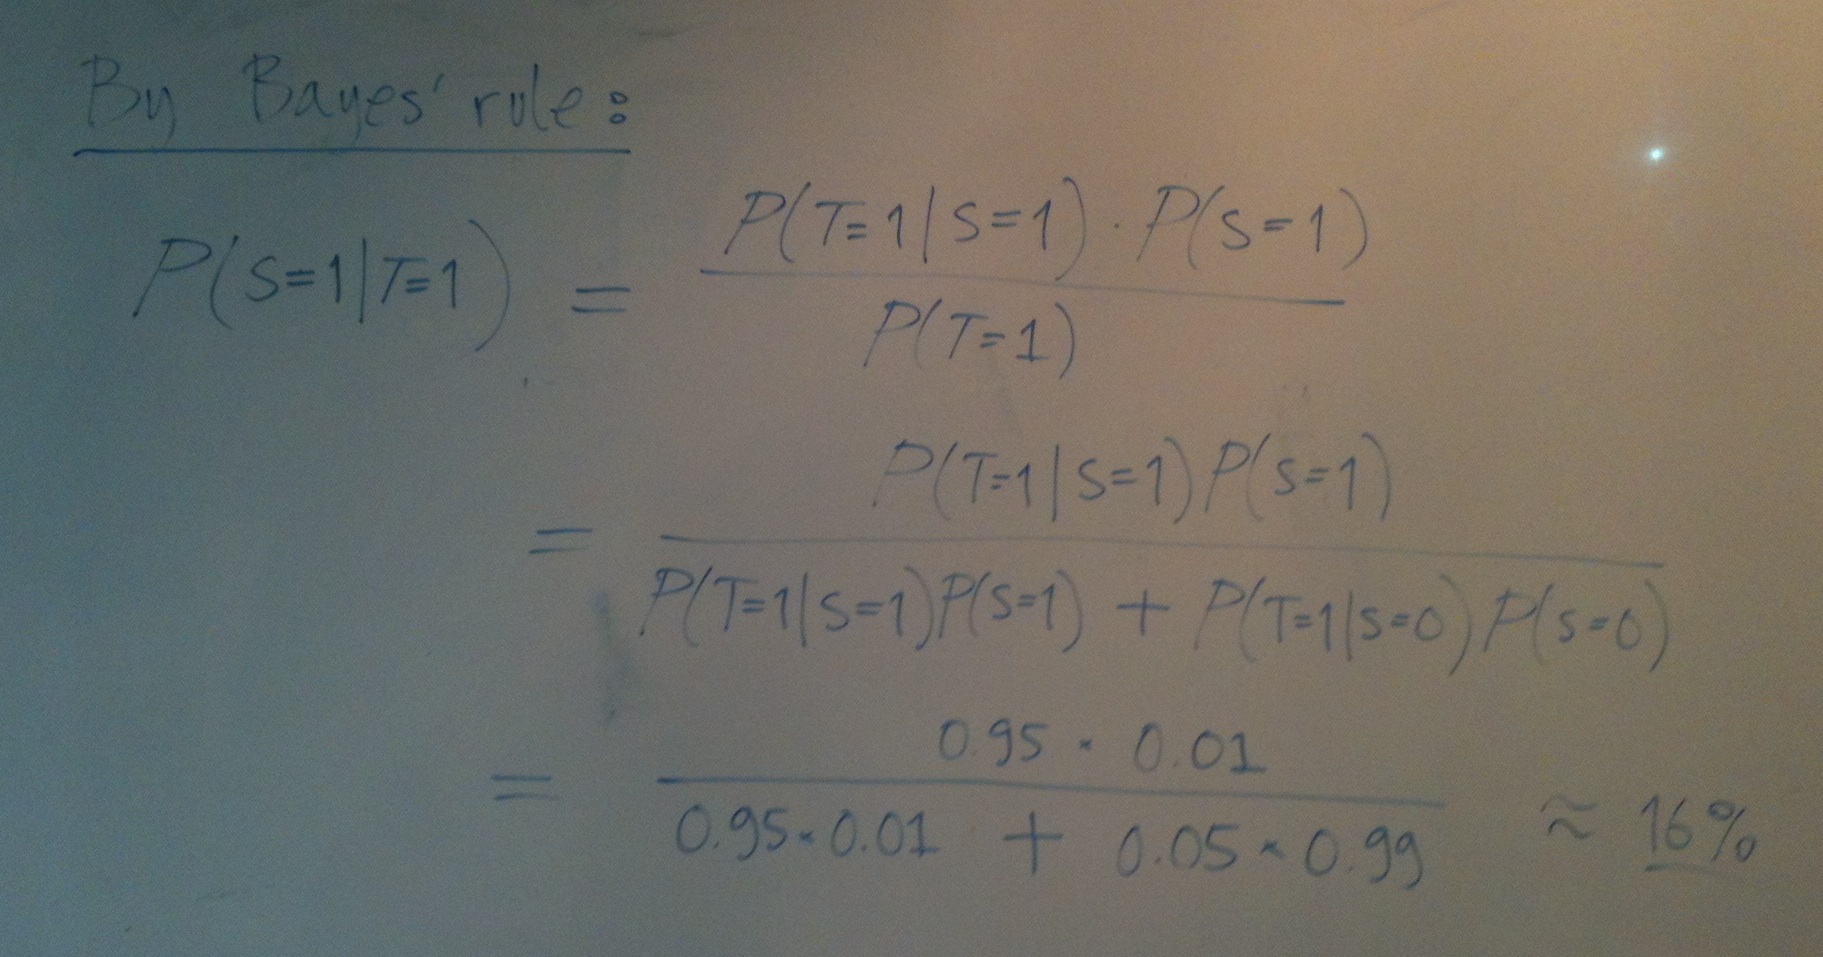 By Bayes' rule:
P(S=1|T=1) = P(T=1|S=1) · P(S=1)
P(T=1)
= P(T=1|S=1)P(S=1)
P(T=1|S=1)P(S=1) + P(T=1|S=0)P(S=0)
= 0.95 · 0.01
0.95·0.01 + 0.05·0.99 ≈ 16%